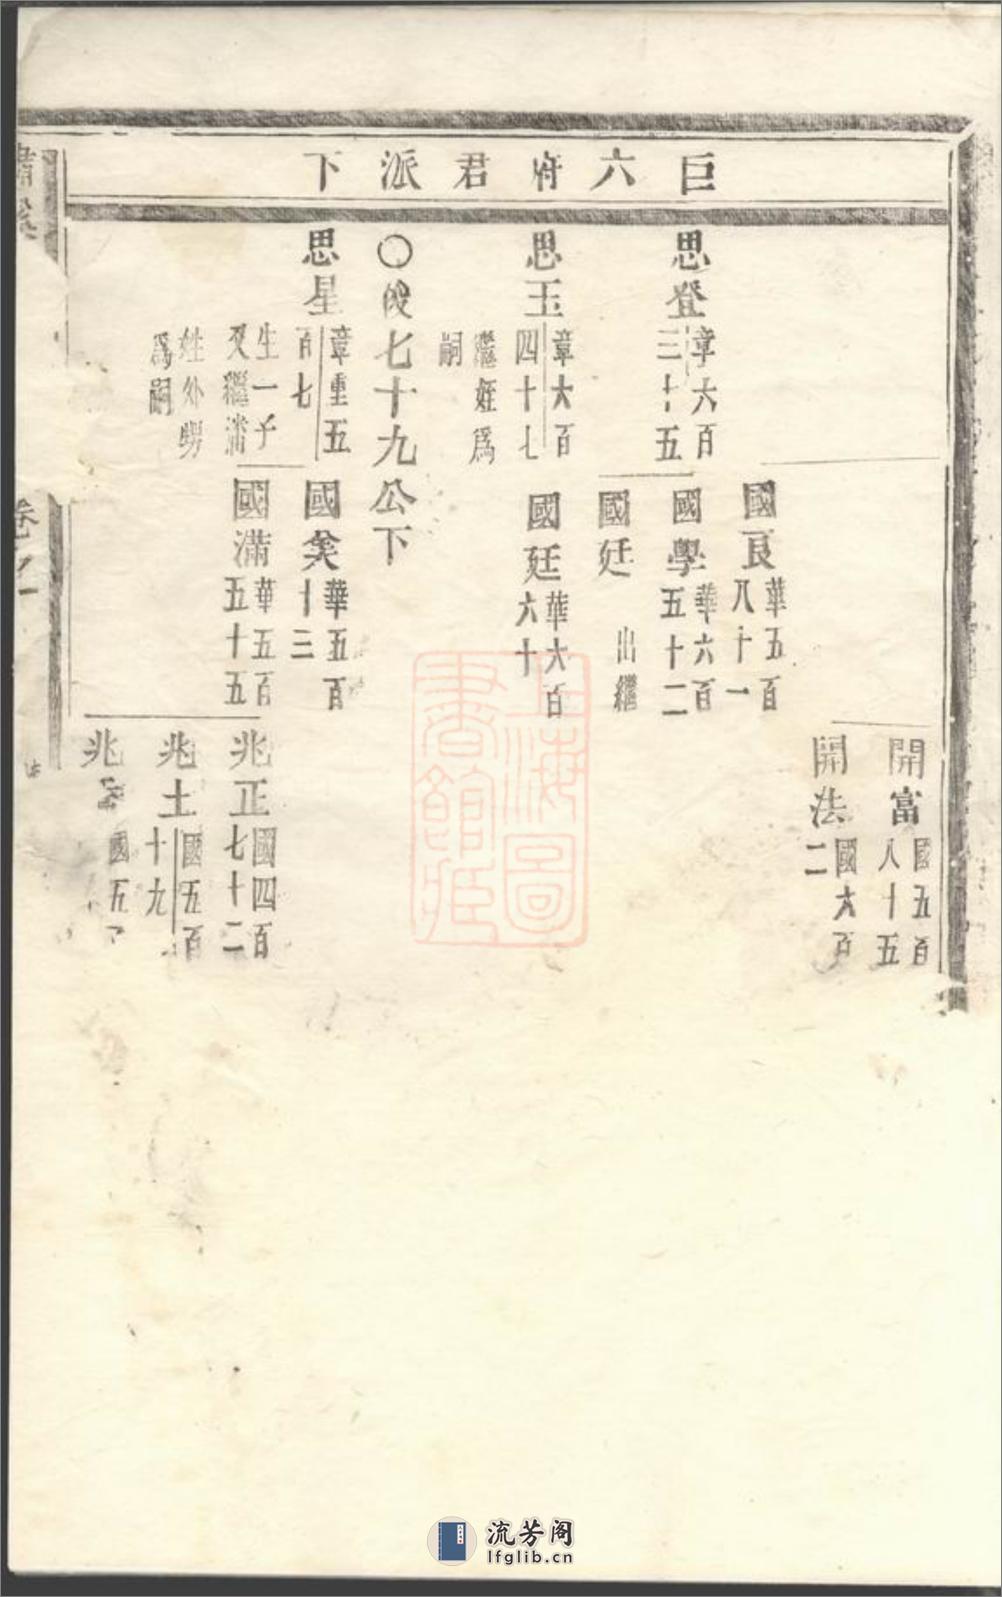 巨六府君派下
開富 國五百八十五
開法 國六百二
國良 華五百八十一
思登 章六百三十五
國學 華六百五十二
國廷 出繼
思玉 章六百四十七
國廷 華六百六十
繼姪爲嗣
〇俊七十九公下
思星 章重五百七
國 華五百十三
生一子又繼滿姓外甥爲嗣
國滿 華五百五十五
兆正 國四百七十二
兆土 國五百十九
兆 國五
卷之一
上海圖書館藏
流芳阁
lfglib.cn